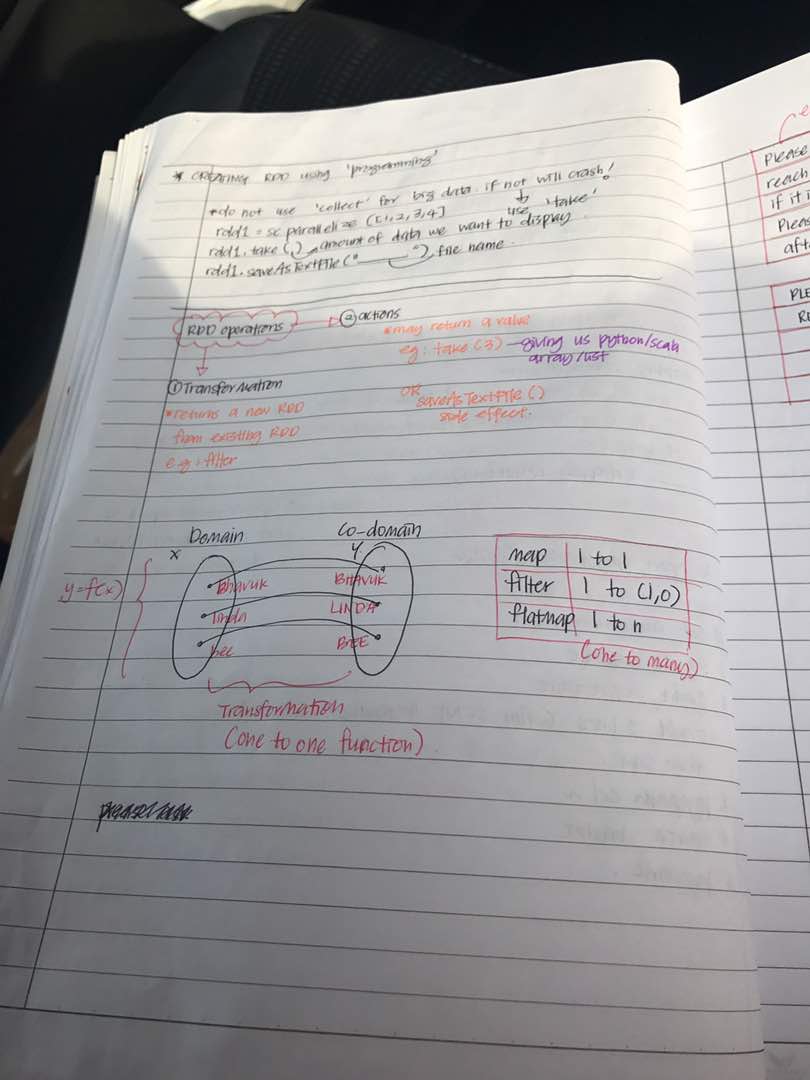 * CREATING RDD using 'programming'
* do not use 'collect' for big data. if not will crash!
use 'take'
rdd1 = sc.parallelize ([1,2,3,4]
rdd1.take( ) amount of data we want to display
rdd1.saveAsTextFile(" ") file name.
RDD operations
② actions
* may return a value
eg: take (3) – giving us python/scala
array/list
OR
saveAsTextFile ()
side effect.
① Transformation
* returns a new RDD
from existing RDD
e.g: filter
Domain
Co-domain
x
y
y=f(x)
Bhavuk
BHAVUK
linda
LINDA
bee
BEE
Transformation
(one to one function)
map 1 to 1
filter 1 to (1,0)
flatmap 1 to n
(one to many)
Please
reach
if it i
Please
afte
PLE
RE